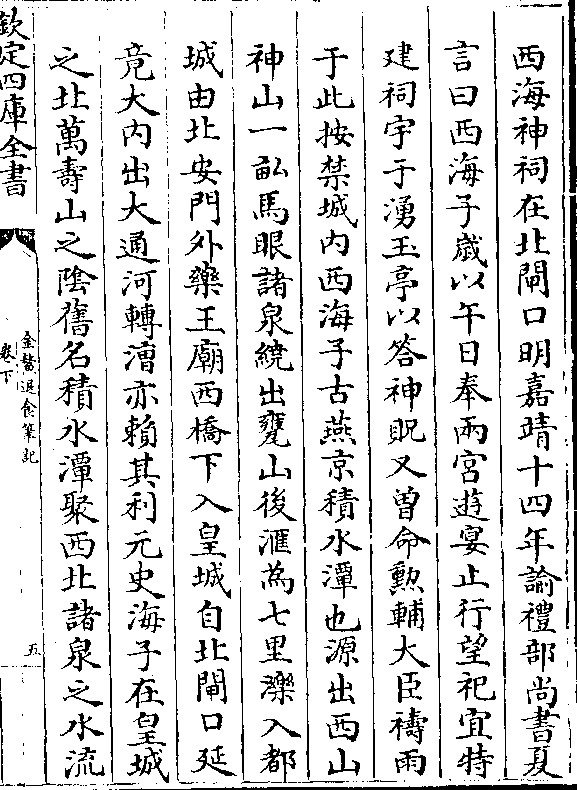 西海神祠在北閘口明嘉靖十四年諭禮部尚書夏
言曰西海子歳以午日奉兩宮遊宴止行望祀宜特
建祠宇于湧玉亭以答神貺又曽命勲輔大臣禱雨
于此按禁城内西海子古燕京積水潭也源出西山
神山一畆馬眼諸泉繞出甕山後滙為七里濼入都
城由北安門外藥王廟西橋下入皇城自北閘口延
竟大内出大通河轉漕亦頼其利元史海子在皇城
之北萬夀山之隂舊名積水潭聚西北諸泉之水流
欽定四庫全書
金鰲退食筆記
卷下
五